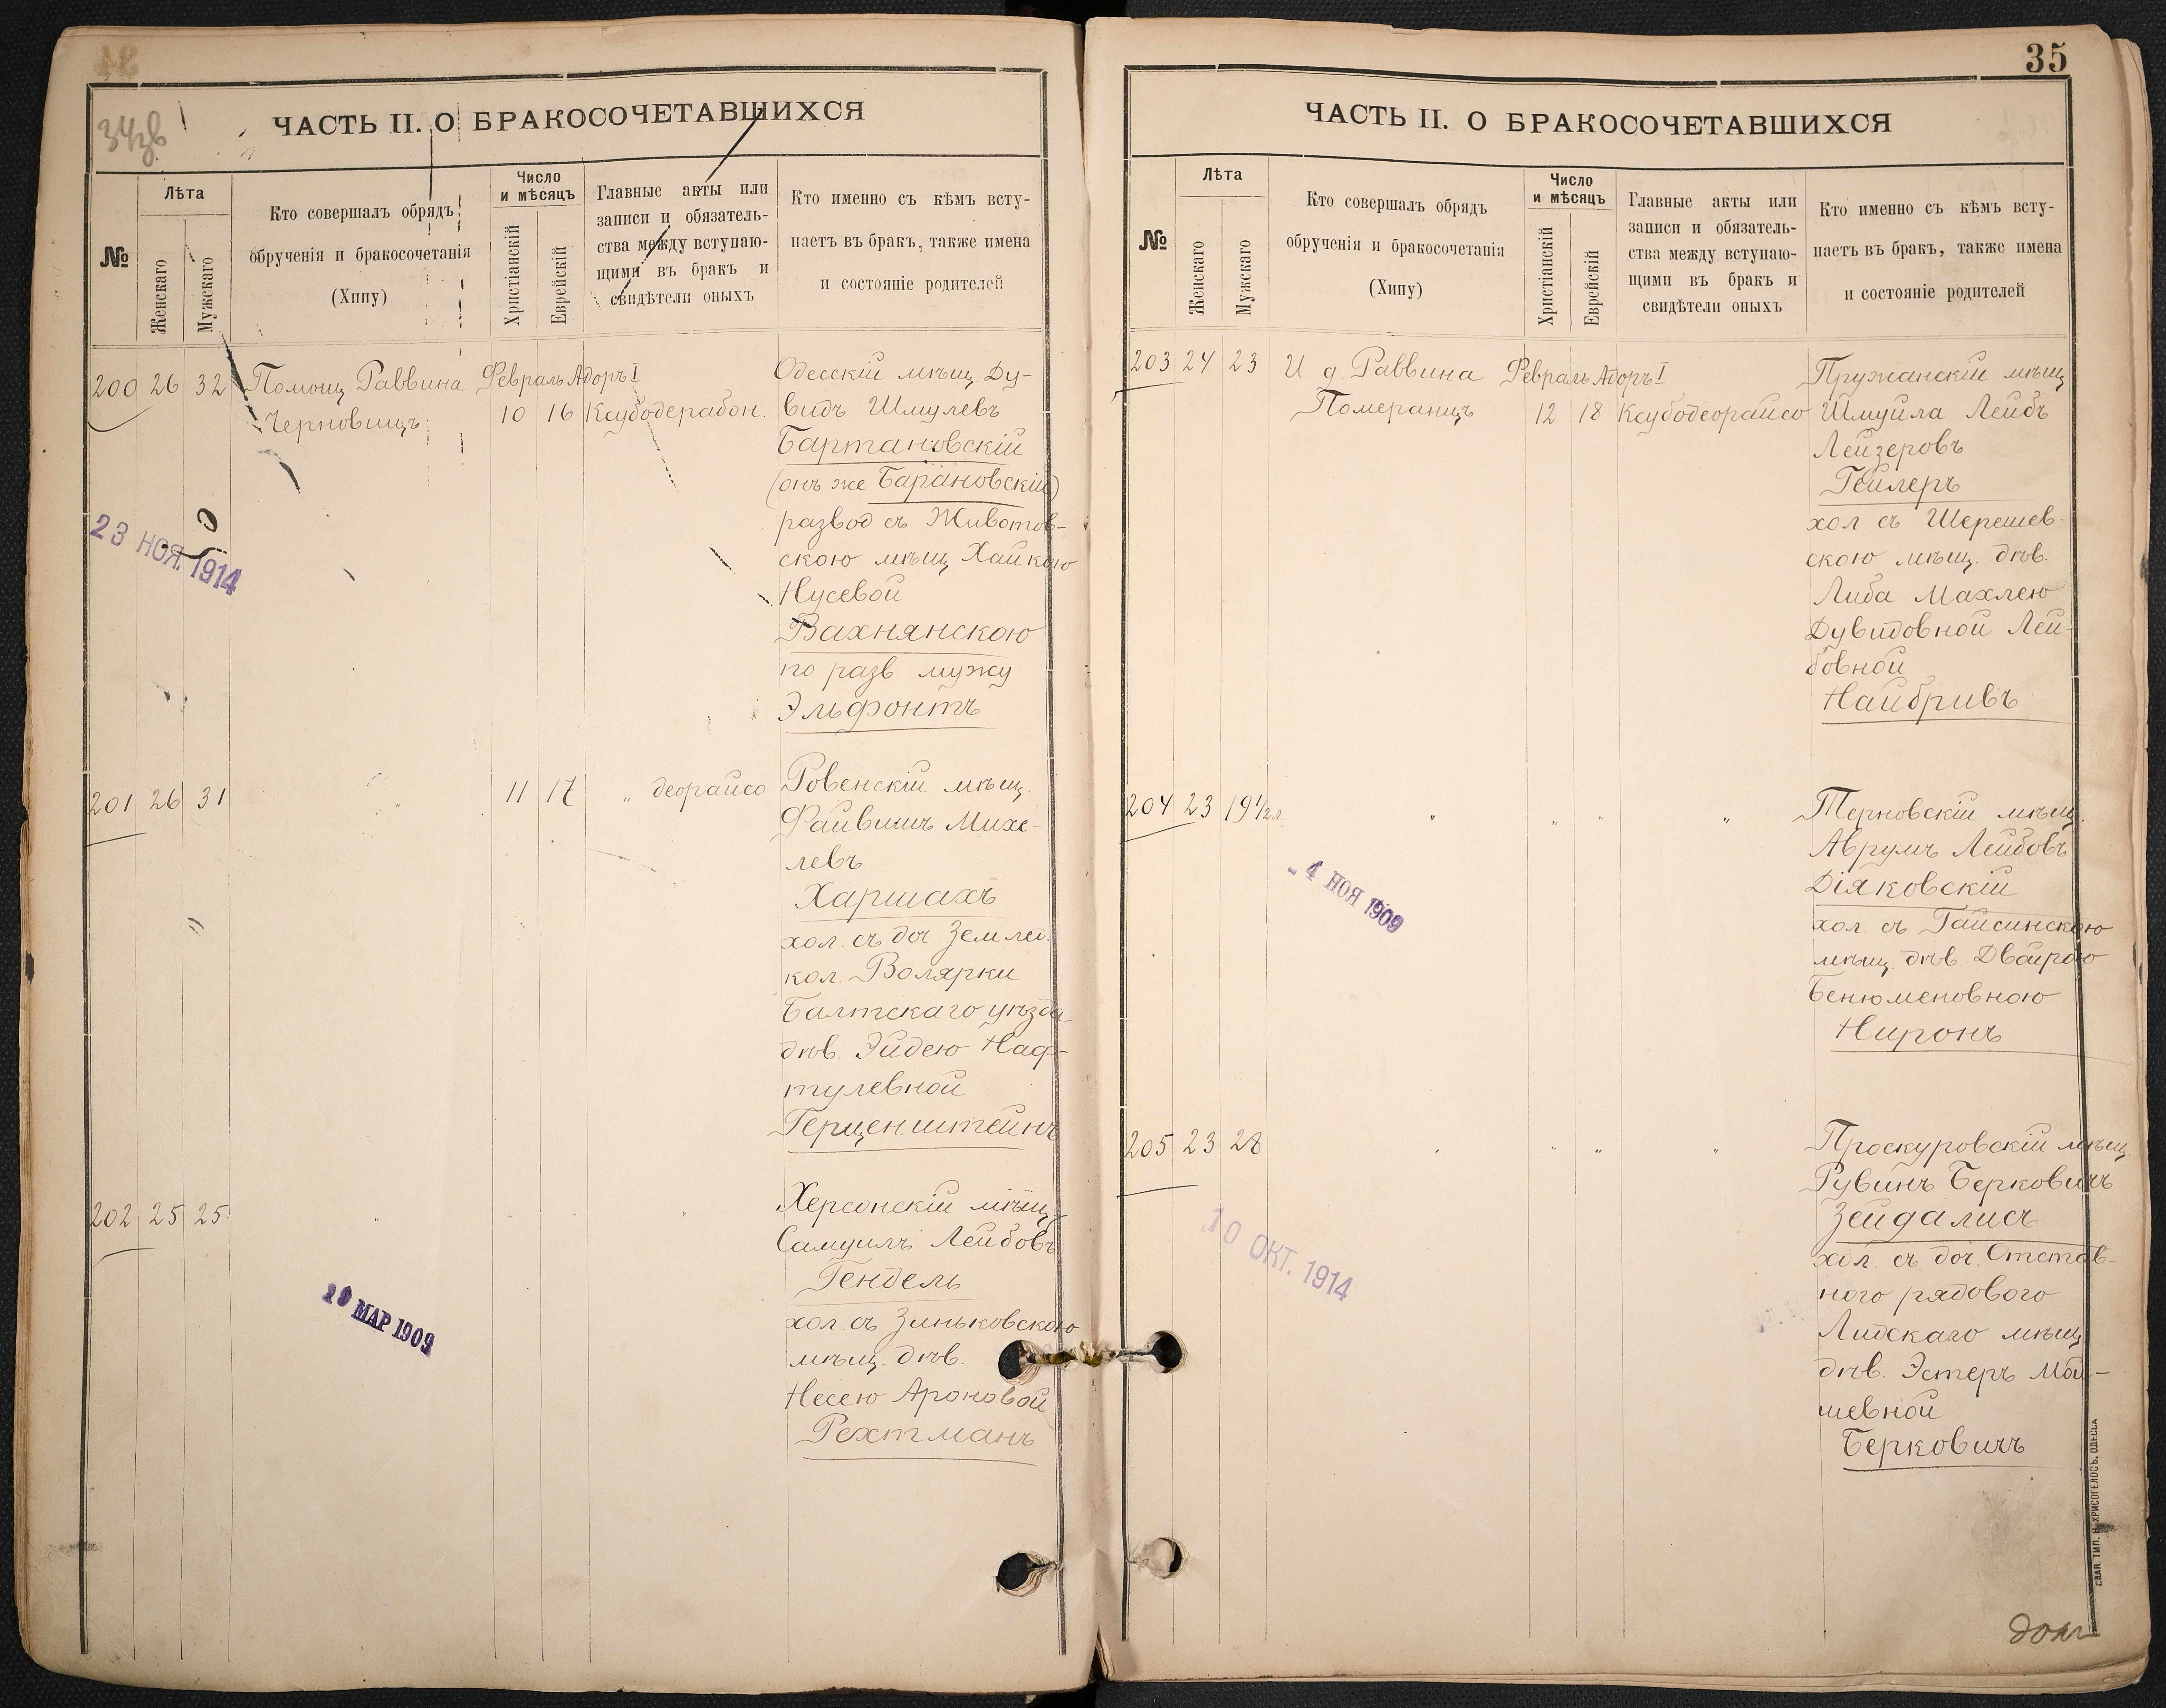 34зв
ЧАСТЬ II. О БРАКОСОЧЕТАВШИХСЯ
№
Лѣта
Женскаго
Мужскаго
Кто совершалъ обрядъ
обрученія и бракосочетанія
(Хипу)
Число
и мѣсяцъ
Христіанскій
Еврейскій
Главные акты или
записи и обязатель-
ства между вступаю-
щими въ бракъ и
свидѣтели оныхъ
Кто именно съ кѣмъ всту-
паетъ въ бракъ, также имена
и состояніе родителей
200 26 32 Помощ. Раввина Февраль Адоръ I
Черновицъ 10 16 Ксубодерабон.
Одесскій мѣщ. Ду-
видъ Шмулевъ
Бартановскій
(онъ же Барановскій)
развод съ Животов-
скою мѣщ. Хайкою
Нусевой
Вахнянскою
по разв. мужу
Эльфонтъ
23 НОЯ. 1914
201 26 31 " 11 17 " деорайсо
Ровенскій мѣщ.
Файвишъ Михе-
левъ
Харшахъ
хол. съ доч. Землед.
кол. Волярки
Балтскаго уѣзда
дѣв. Эйдею Наф-
тулевной
Герценштейнъ
202 25 25 " " " "
Херсонскій мѣщ.
Самуилъ Лейбовъ
Гендель
хол. съ Зиньковскою
мѣщ. дѣв.
Несею Ароновой
Рехтманъ
19 МАР 1909
35
ЧАСТЬ II. О БРАКОСОЧЕТАВШИХСЯ
№
Лѣта
Женскаго
Мужскаго
Кто совершалъ обрядъ
обрученія и бракосочетанія
(Хипу)
Число
и мѣсяцъ
Христіанскій
Еврейскій
Главные акты или
записи и обязатель-
ства между вступаю-
щими въ бракъ и
свидѣтели оныхъ
Кто именно съ кѣмъ всту-
паетъ въ бракъ, также имена
и состояніе родителей
203 24 23 И д. Раввина Февраль Адоръ I
Померанцъ 12 18 Ксубодеорайсо
Пружанскій мѣщ.
Шмуйла Лейбъ
Лейзеровъ
Гейлеръ
хол съ Шерешев-
скою мѣщ. дѣв.
Либа Махлею
Дувидовной Лей-
бовной
Найбривъ
204 23 19 1/2 л. " " " "
Терновскій мѣщ.
Аврумъ Лейбовъ
Діяковскій
хол. съ Гайсинскою
мѣщ. дѣв. Двойрою
Бенюменовною
Ниронъ
- 4 НОЯ 1909
205 23 28 " " " "
Проскуровскій мѣщ.
Рувинъ Берковичъ
Зейдалисъ
хол. съ доч. Отстав-
ного рядового
Лидскаго мѣщ.
дѣв. Эстеръ Мой-
шевной
Берковичъ
10 ОКТ. 1914
СЛАВ. ТИП. Н. ХРИСОГЕЛОСЪ. ОДЕССА